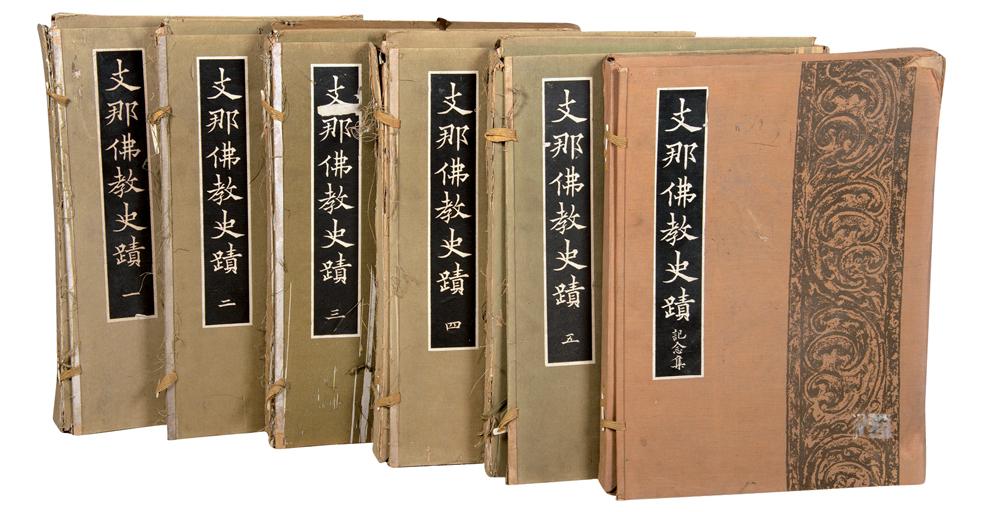 支那佛教史蹟 一
支那佛教史蹟 二
支那佛教史蹟 三
支那佛教史蹟 四
支那佛教史蹟 五
支那佛教史蹟 記念集